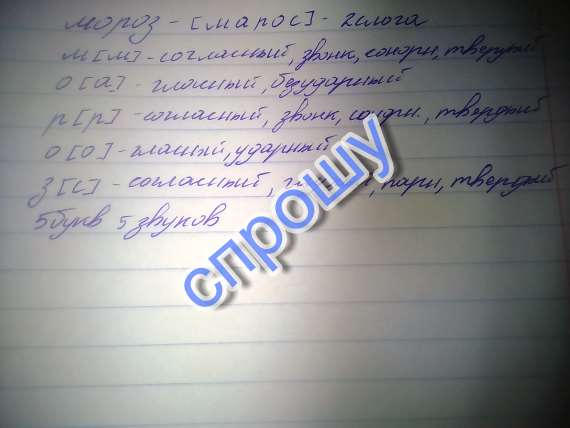 мороз - [марос] - 2 слога
м [м] - согласный, звонк, сонорн, твердый
о [а] - гласный, безударный
р [р] - согласный, звонк, сонорн., твердый
о [о] - гласный, ударный
з [с] - согласный, парн, твердый
5 букв 5 звуков
спрошу